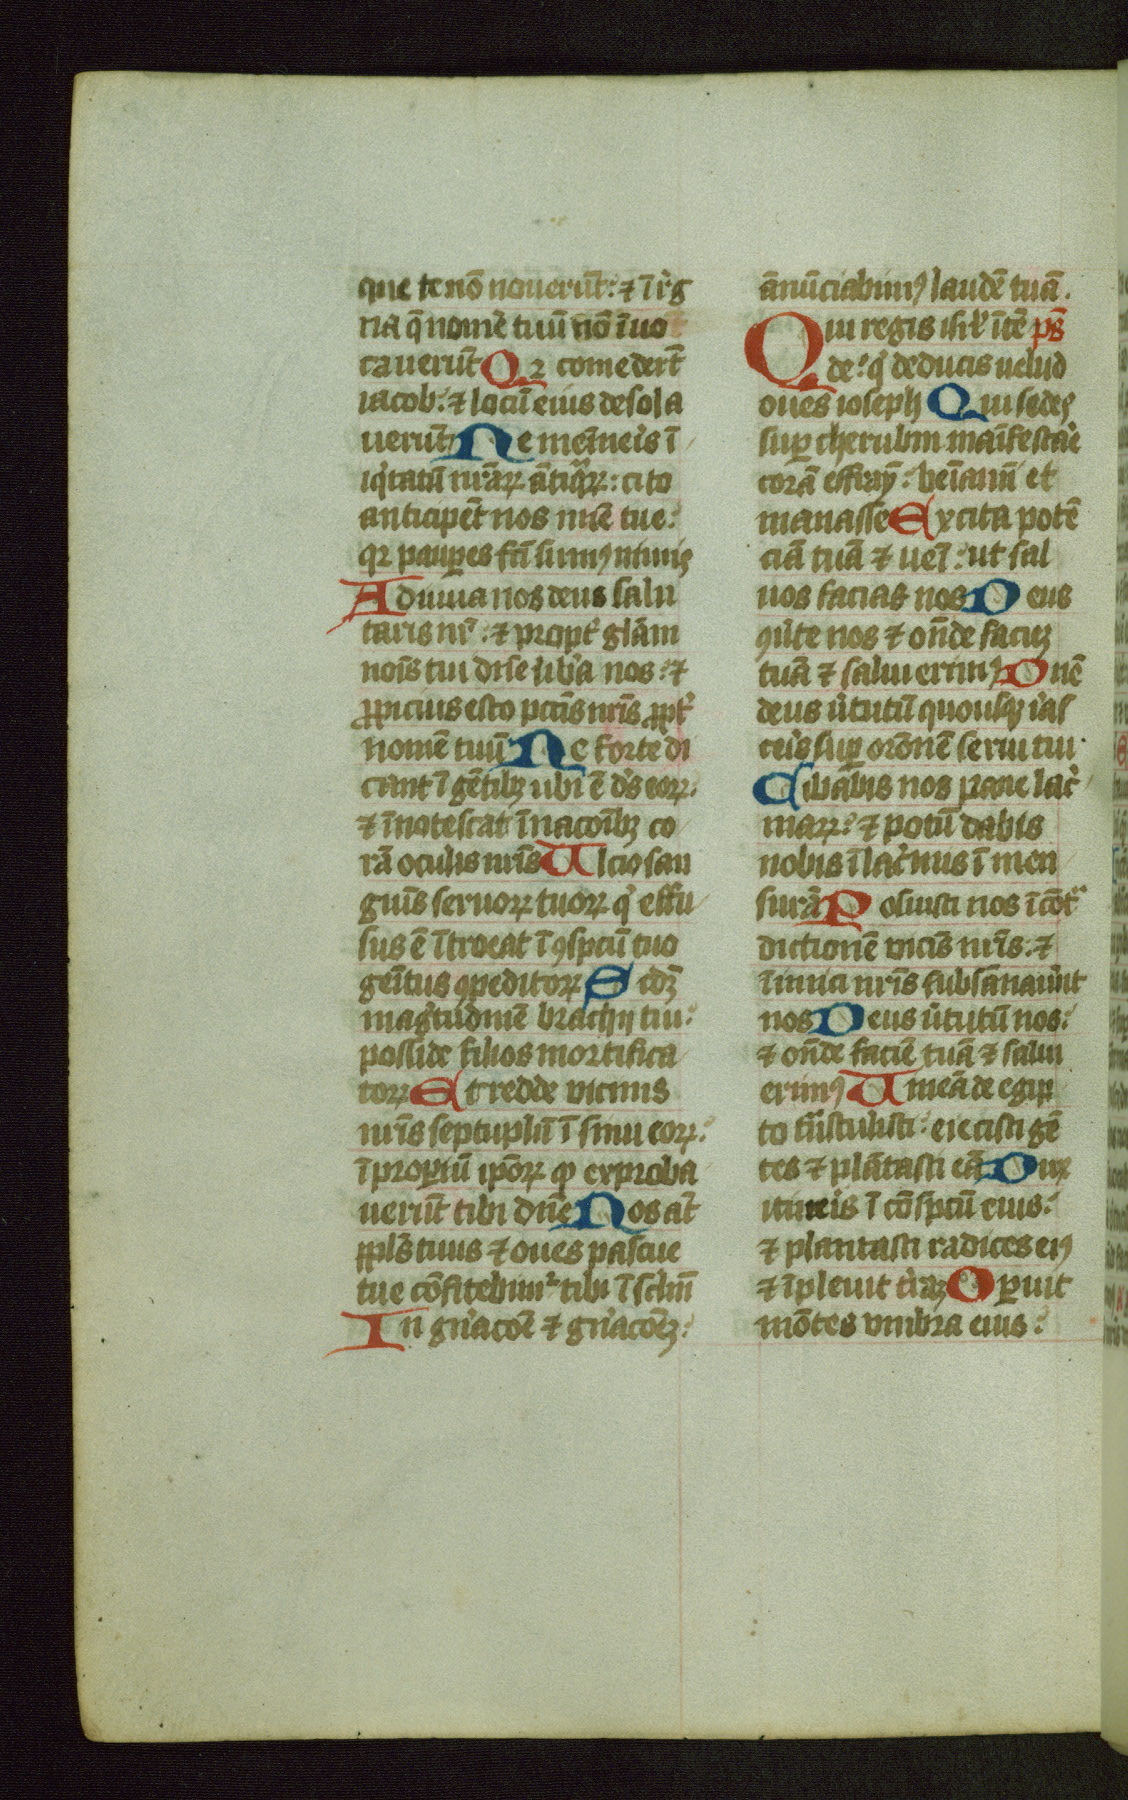 que te nō nouerūt: ⁊ ī rͥg
na q̄ nomē tuū nō īuo
cauerūt Qꝛ comedert̄
iacob: ⁊ locū eius desola
uerūt Ne memīeris ī
iqͥtatū nr̄aꝝ ātiqͣꝝ: cito
anticipēt nos mīe tue:
qꝛ pauꝑes fc̄i sumꝰ nimis
Adiuua nos deus salu
taris nr̄: ⁊ ꝓpt̄ glām
noīs tui dn̄e libͣa nos: ⁊
ꝓpicius esto pctīs nr̄is ꝓpt̄
nomē tuū Ne forte di
cant ī gētibꝫ ubi ē ds̄ eoꝝ:
⁊ īnotescat ī nacōibꝫ co
rā oculis nr̄is Vlcio san
guīs seruoꝝ tuoꝝ qͥ effu
sus ē ītroeat ī ꝯspcū tuo
gemītus ꝯpeditoꝝ Scdꝫ
magͥtudinē brachij tui:
posside filios mortifica
toꝝ Et redde vicinis
nr̄is septuplū ī sinu eoꝝ:
īproꝑiū ipōꝝ qͦ exproba
uerūt tibi dn̄e Nos aūt
ppls̄ tuus ⁊ oues pascue
tue cōfitebimͬ tibi ī sclm̄
In gnͣacōē ⁊ gnͣacōeꝫ:
ānūciabimꝰ laudē tuā.
Qui regis isrl̄ ītē ps̄
de: qͥ deducis uelud
oues ioseph Qui sedes
suꝑ cherubin maīfestāe
corā effraȳ: beīamī et
manasse Excita potē
ciā tuā ⁊ uēi: ut sal
uos facias nos Deus
ꝯuͥte nos ⁊ on̄de facieꝫ
tuā ⁊ salui erimꝰ Dn̄e
deus uͥtutū quousqꝫ iras
ceris suꝑ orōnē serui tui
Cibabis nos pane lacͥ
maꝝ: ⁊ potū dabis
nobis ī lacͥmis ī men
surā Posuisti nos ī cōtͣ
dictionē vicīs nr̄is: ⁊
inimici nr̄is subsānauēūt
nos Deus uͥtutū nos:
⁊ on̄de faciē tuā ⁊ salui
erimꝰ Vineā de egip
to tn̄stulisti: eiecisti gē
tes ⁊ plātasti eā Dux
itineris ī cōspcū eius:
⁊ plantasti radices eiꝰ
⁊ īpleuit tͥraꝫ Oꝑuit
mōtes vmbra eius: